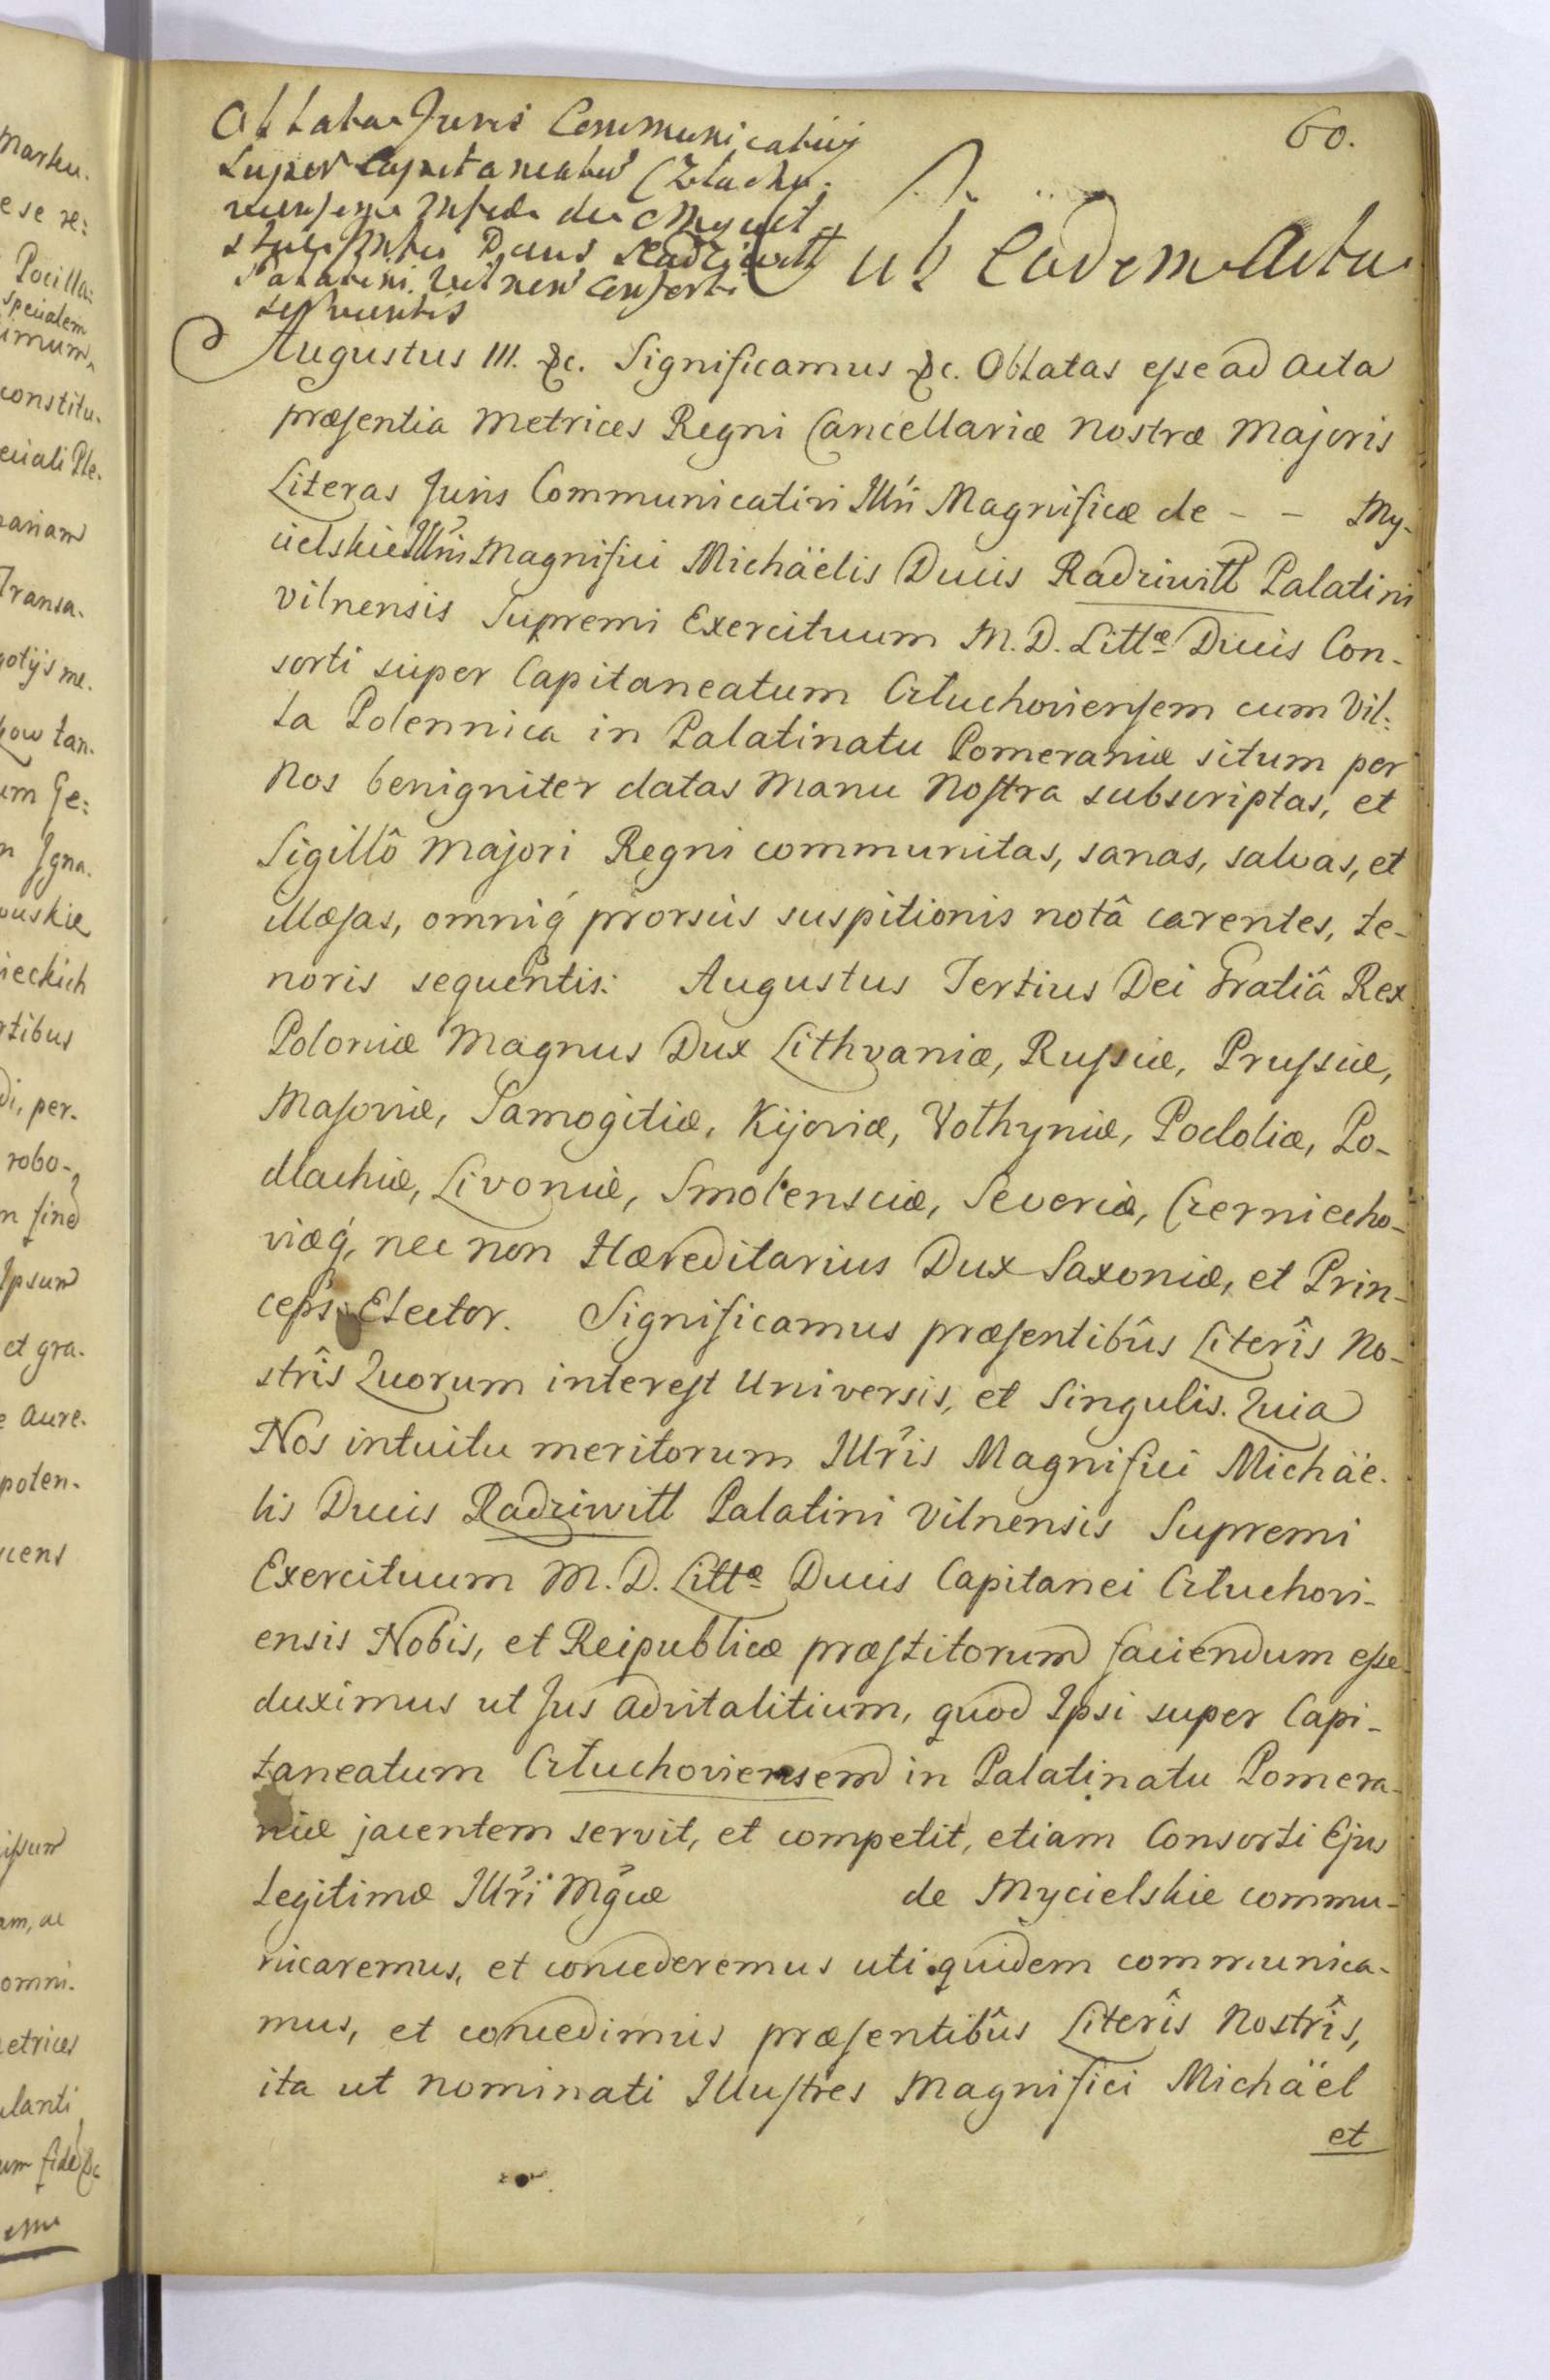 60.
Oblata Juris Communicativi
super Capitaneatu Człucho-
viensi Mfcæ de Myciel
skie Ducis Radziwiłł
Palatini Vilnen Consorti
servientis
Sub Eodem Actu
Augustus III. &c. Significamus &c. Oblatas esse ad Acta
præsentia Metrices Regni Cancellariæ Nostræ Majoris
Literas Juris Communicativi Illri Magnificæ de - - My-
cielskie Illris Magnifici Michäelis Ducis Radziwiłł Palatini
Vilnensis Supremi Exercituum M. D. Littæ Ducis Con-
sorti super Capitaneatum Człuchoviensem cum Vil:
la Polennica in Palatinatu Pomeraniæ situm per
Nos benigniter datas Manu Nostra subscriptas, et
Sigillô Majori Regni communitas, sanas, salvas, et
illæsas, omniq́ prorsus suspitionis notâ carentes, te-
noris sequentis: Augustus Tertius Dei Gratiâ Rex
Poloniæ Magnus Dux Lithvaniæ, Russiæ, Prussiæ,
Masoviæ, Samogitiæ, Kijoviæ, Volhyniæ, Podoliæ, Po-
dlachiæ, Livoniæ, Smolensciæ, Severiæ, Czerniecho-
viæq́, nec non Hæreditarius Dux Saxoniæ, et Prin-
ceps Elector. Significamus præsentibûs Literîs No-
strîs Quorum interest Universis, et Singulis. Quia
Nos intuitu meritorum Illris Magnifici Michäe-
lis Ducis Radziwiłł Palatini Vilnensis Supremi
Exercituum M. D. Littæ Ducis Capitanei Człuchovi-
ensis Nobis, et Reipublicæ præstitorum faciendum esse
duximus ut Jus advitalitium, quod Ipsi super Capi-
taneatum Człuchoviensem in Palatinatu Pomera-
niæ jacentem servit, et competit, etiam Consorti Ejus
Legitimæ Illri Mgcæ de Mycielskie commu-
nicaremus, et concederemus uti quidem communica-
mus, et concedimus præsentibûs Literîs Nostrîs,
ita ut nominati Illustres Magnifici Michäel
et